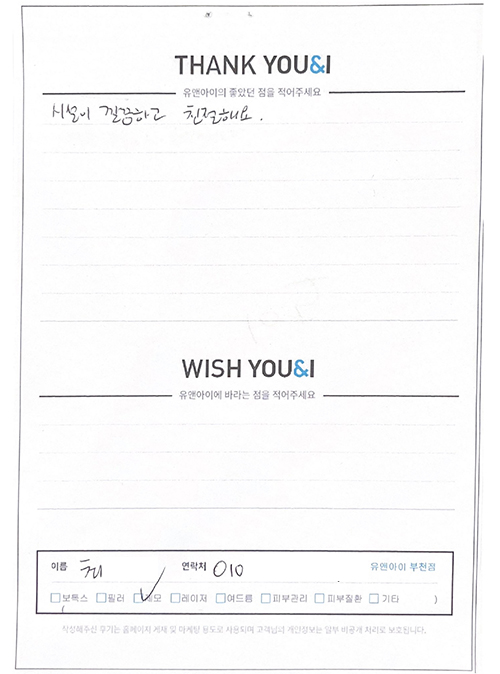 THANK YOU&I
유앤아이의 좋았던 점을 적어주세요
시설이 깔끔하고 친절해요.
WISH YOU&I
유앤아이에 바라는 점을 적어주세요
이름 연락처 010 유앤아이 부천점
□보톡스 □필러 □제모 □레이저 □여드름 □피부관리 □피부질환 □기타
( )
작성해주신 후기는 홈페이지 게재 및 마케팅 용도로 사용되며 고객님의 개인정보는 일부 비공개 처리로 보호됩니다.